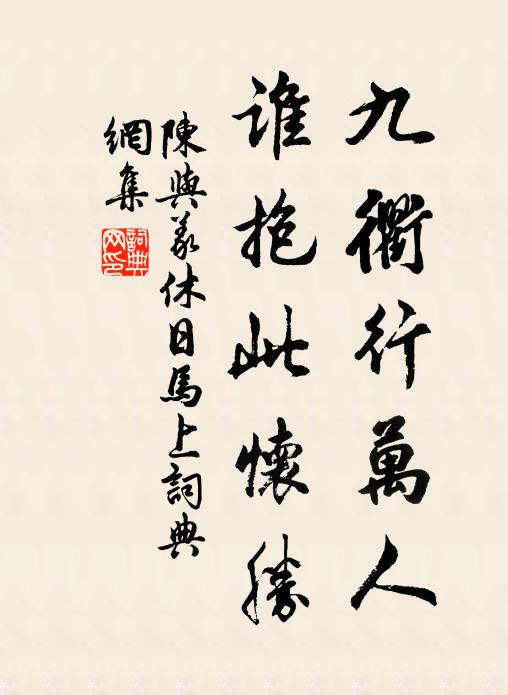 九衢行萬人
誰抱此懷勝
陳與義休日馬上詞典
網集
詞典網印